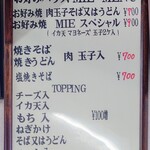 お好み焼 肉玉子そば又はうどん ¥700
お好み焼 MIE スペシャル ¥900
(イカ天 マヨネーズ 玉子2ケ入)
焼きそば
焼きうどん 肉玉入 ¥700
塩焼きそば ¥700
TOPPING
チーズ入
イカ天入
もち 入 ¥100増
ねぎかけ
そば又はうどん